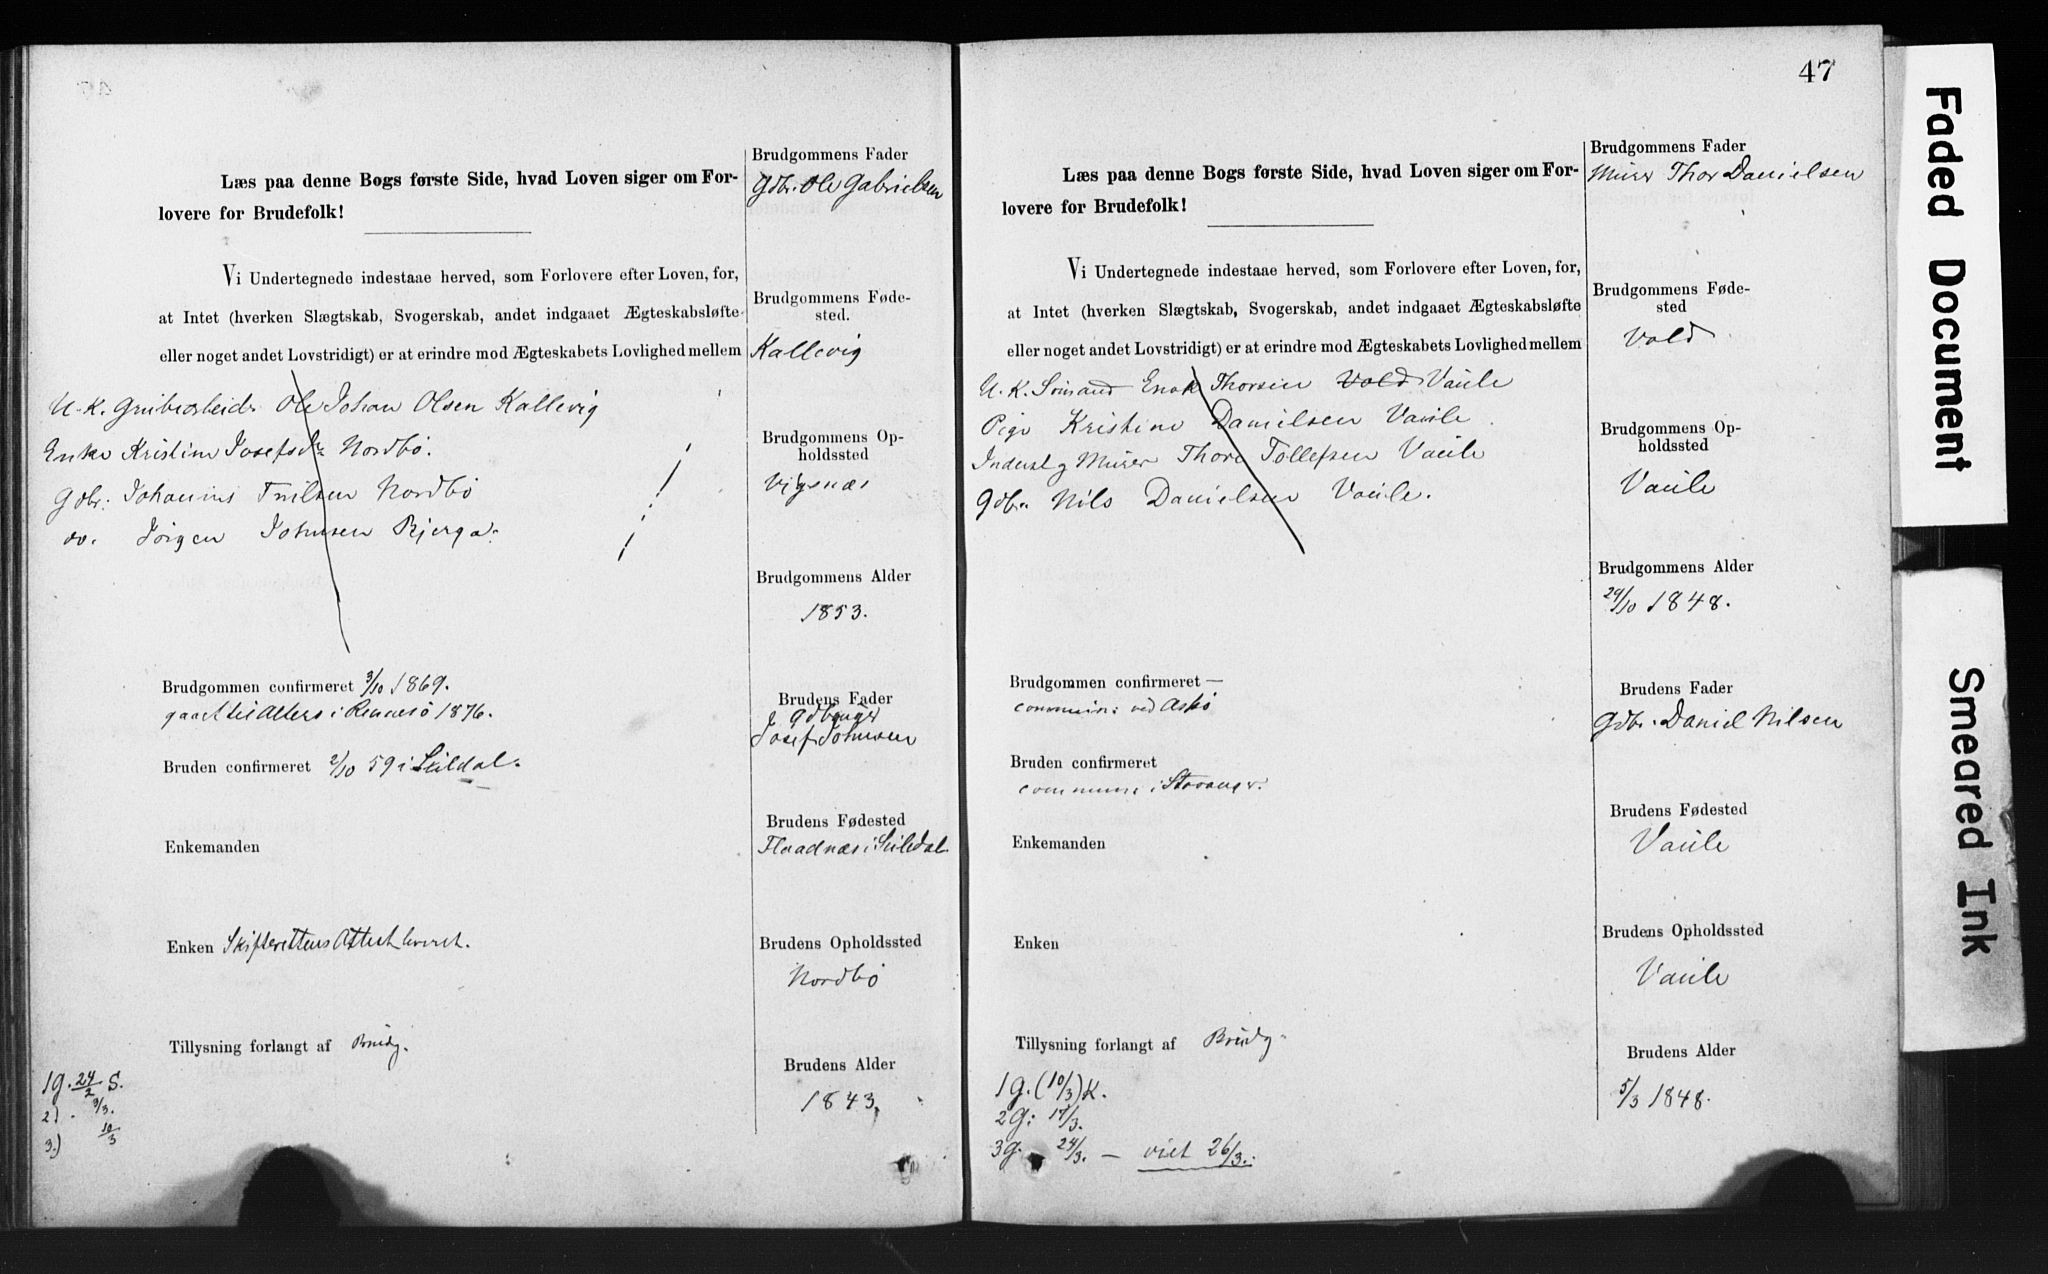 Læs paa denne Bogs første Side, hvad Loven siger om For-
lovere for Brudefolk!
Vi Undertegnede indestaae herved, som Forlovere efter Loven, for,
at Intet (hverken Slægtskab, Svogerskab, andet indgaaet Ægteskabsløfte
eller noget andet Lovstridigt) er at erindre mod Ægteskabets Lovlighed mellem
U. K. Ole Johan Olsen Kallevig
Enke Kristine Josefsdr Nordbø.
Gdbr. Johannes Nordbø
do. Jörgen Johnsen Bjerga.
Brudgommen confirmeret 3/10 1869.
gaaet til Alters i Rennesö 1876.
Bruden confirmeret 2/10 59 i Suldal.
Enkemanden
Enken Skifterettens Attest leveret.
Tillysning forlangt af Brudg.
1g. 24/2 S.
2) . 3/3.
3.) 10/3
Brudgommens Fader
Gdbr. Ole Gabrielsen
Brudgommens Føde-
sted.
Kallevig
Brudgommens Op-
holdssted
Vigsnæs
Brudgommens Alder
1853.
Brudens Fader
Gdbruger
Josef Johnsen
Brudens Fødested
Flaadnæs i Suledal
Brudens Opholdssted
Nordbö
Brudens Alder
1843.
47
Læs paa denne Bogs første Side, hvad Loven siger om For-
lovere for Brudefolk!
Vi Undertegnede indestaae herved, som Forlovere efter Loven, for,
at Intet (hverken Slægtskab, Svogerskab, andet indgaaet Ægteskabsløfte
eller noget andet Lovstridigt) er at erindre mod Ægteskabets Lovlighed mellem
U. K. Sömand Enok Thorsen Vold Vaule
Pige Kristine Danielsen Vaule.
Inderst og Murer Thore Tollefsen Vaule
Gdbr. Nils Danielsen Vaule.
Brudgommen confirmeret —
ved Askö
Bruden confirmeret
i Stavanger.
Enkemanden
Enken
Tillysning forlangt af Brudg.
1g. (10/3) K.
2g: 17/3.
3g. 24/3. — viet 26/3.
Brudgommens Fader
Murer Thor Danielsen
Brudgommens Føde-
sted
Vold
Brudgommens Op-
holdssted
Vaule
Brudgommens Alder
29/10 1848.
Brudens Fader
Gdbr. Daniel Nilsen
Brudens Fødested
Vaule
Brudens Opholdssted
Vaule
Brudens Alder
5/3 1848.
Faded Document
Smeared Ink